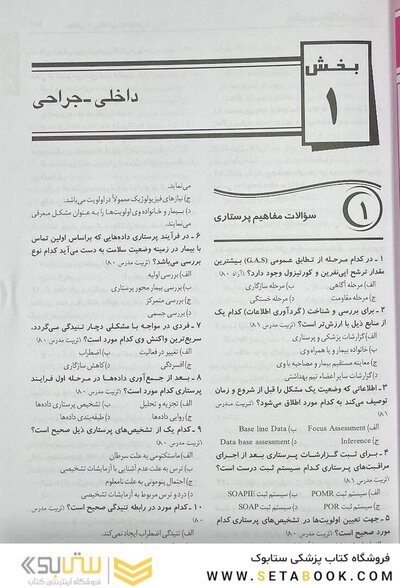 بخش
۱
داخلی-جراحی
۱
سؤالات مفاهیم پرستاری
۱ - در کدام مرحله از تطابق عمومی (G.A.S) بیشترین
مقدار ترشح اپی‌نفرین و کورتیزول وجود دارد؟ (آزاد ۸۰)
الف) مرحله آگاهی
ب) مرحله سازگاری
ج) مرحله مقاومت
د) مرحله خستگی
۲ - برای بررسی و شناخت (گردآوری اطلاعات) کدام یک
از منابع ذیل با ارزش‌تر است؟ (تربیت مدرس ۸۱)
الف) گزارشات پزشکی و پرستاری
ب) خانواده بیمار و یا همراه وی
ج) معاینه مستقیم بیمار و مصاحبه با وی
د) گزارشات سایر اعضاء تیم بهداشتی
۳ - اطلاعاتی که وضعیت یک مشکل را قبل از شروع و زمان
توصیف می‌کند به کدام مورد اطلاق می‌شود؟
الف) Focus Assessment
ب) Base line Data
ج) Inference
د) Data base assessment
۴ - برای ثبت گزارشات پرستاری بعد از اجرای
مراقبت‌های پرستاری کدام سیستم ثبت درست است؟
(تربیت مدرس ۸۱)
الف) سیستم ثبت POMR
ب) سیستم ثبت SOAPIE
ج) سیستم ثبت POR
د) سیستم ثبت SOAP
۵ - جهت تعیین اولویت‌ها در تشخیص‌های پرستاری کدام
مورد صحیح است؟ (تربیت مدرس ۸۰)
می‌نماید.
ج) نیازهای فیزیولوژیک معمولاً در اولویت می‌باشد.
د) بیمار و خانواده وی اولویت‌ها را به عنوان مشکل معرفی
می‌نمایند.
۶ - در فرآیند پرستاری داده‌هایی که براساس اولین تماس
با بیمار در زمینه وضعیت سلامت به دست می‌آید کدام نوع
بررسی می‌باشد؟ (تربیت مدرس ۸۰)
الف) بررسی اولیه
ب) بررسی بیمار محور پرستاری
ج) بررسی متمرکز
د) بررسی جسمی
۷ - فردی در مواجه با مشکلی دچار تنیدگی می‌گردد.
سریع‌ترین واکنش وی کدام مورد است؟ (تربیت مدرس ۸۰)
الف) تغییر در فعالیت
ب) اضطراب
ج) افسردگی
د) کاهش سازگاری
۸ - بعد از جمع‌آوری داده‌ها در مرحله اول فرایند
پرستاری کدام مورد است؟ (تربیت مدرس ۸۰)
الف) تجزیه و تحلیل
ب) تشخیص پرستاری داده‌ها
ج) روایی داده‌ها
د) طبقه‌بندی داده‌ها
۹ - کدام یک از تشخیص‌های پرستاری ذیل صحیح است؟
(تربیت مدرس ۸۰)
الف) ماستکتومی به علت سرطان
ب) ترس به علت عدم آشنایی با آزمایشات تشخیصی
ج) احتمال پنومونی به علت نامعلوم
د) درد و ترس مربوط به آزمایشات تشخیصی
۱۰ - کدام مورد در رابطه تنیدگی صحیح است؟ (تربیت مدرس
۸۰)
الف) تنیدگی اضطراب ایجاد نمی‌کند.
فروشگاه کتاب پزشکی ستابوک
WWW.SETABOOK.COM
ستابوک
فروشگاه اینترنتی کتاب